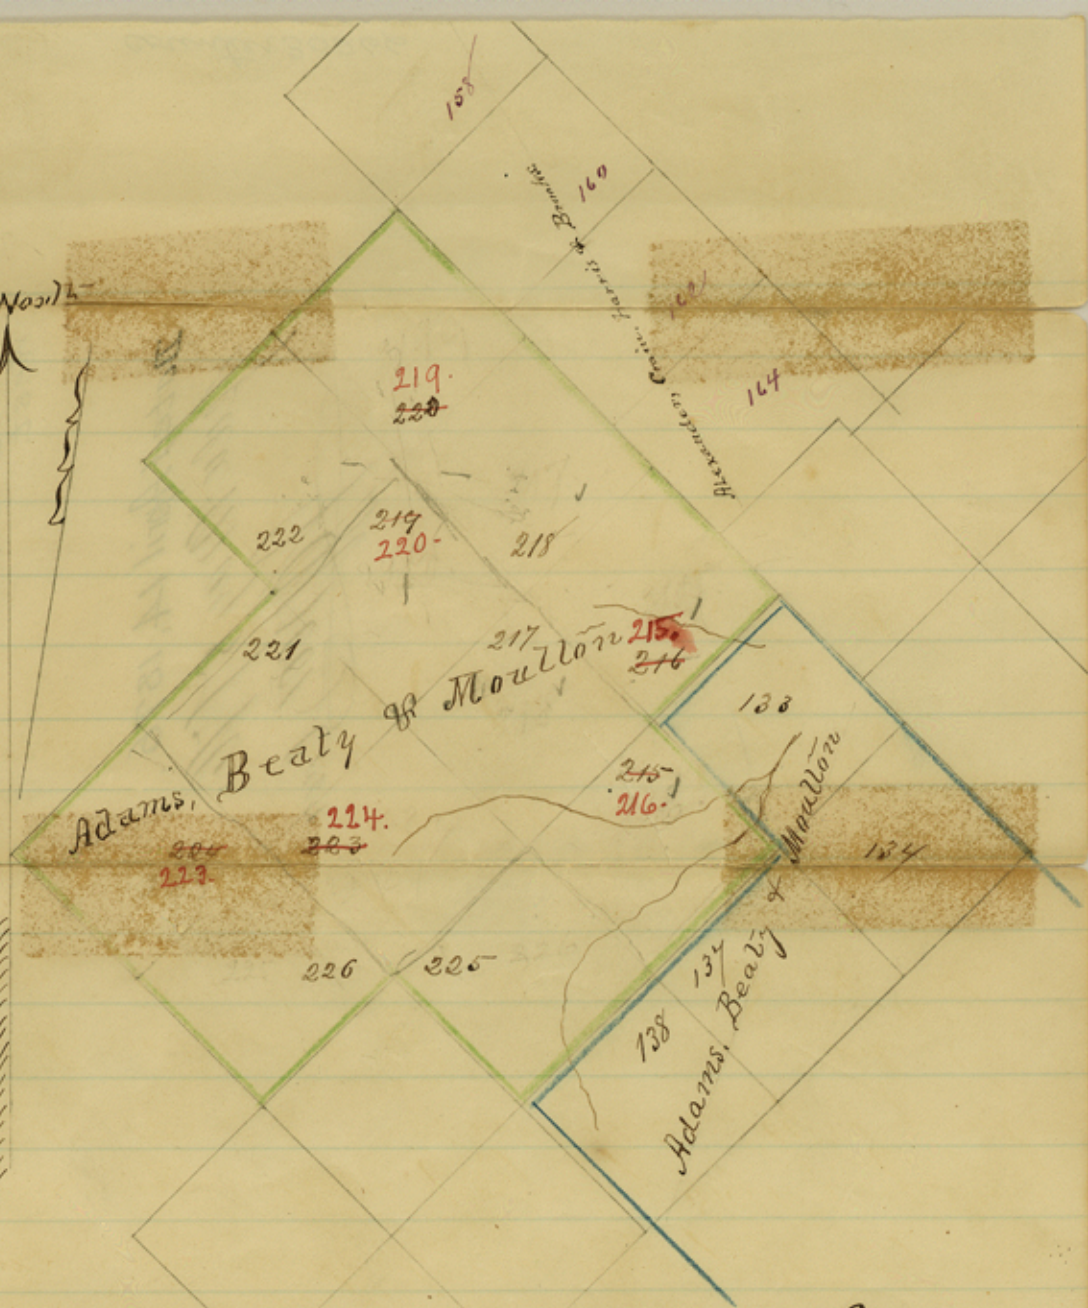 158
160
North
162
Alexander, Crain, Harris & Brooks
164
219.
220
222
219
220-
218
221
217
215.
216
Adams, Beaty & Moulton
133
215
216.
224.
223
223.
134
226
225
137
138
Adams, Beaty & Moulton